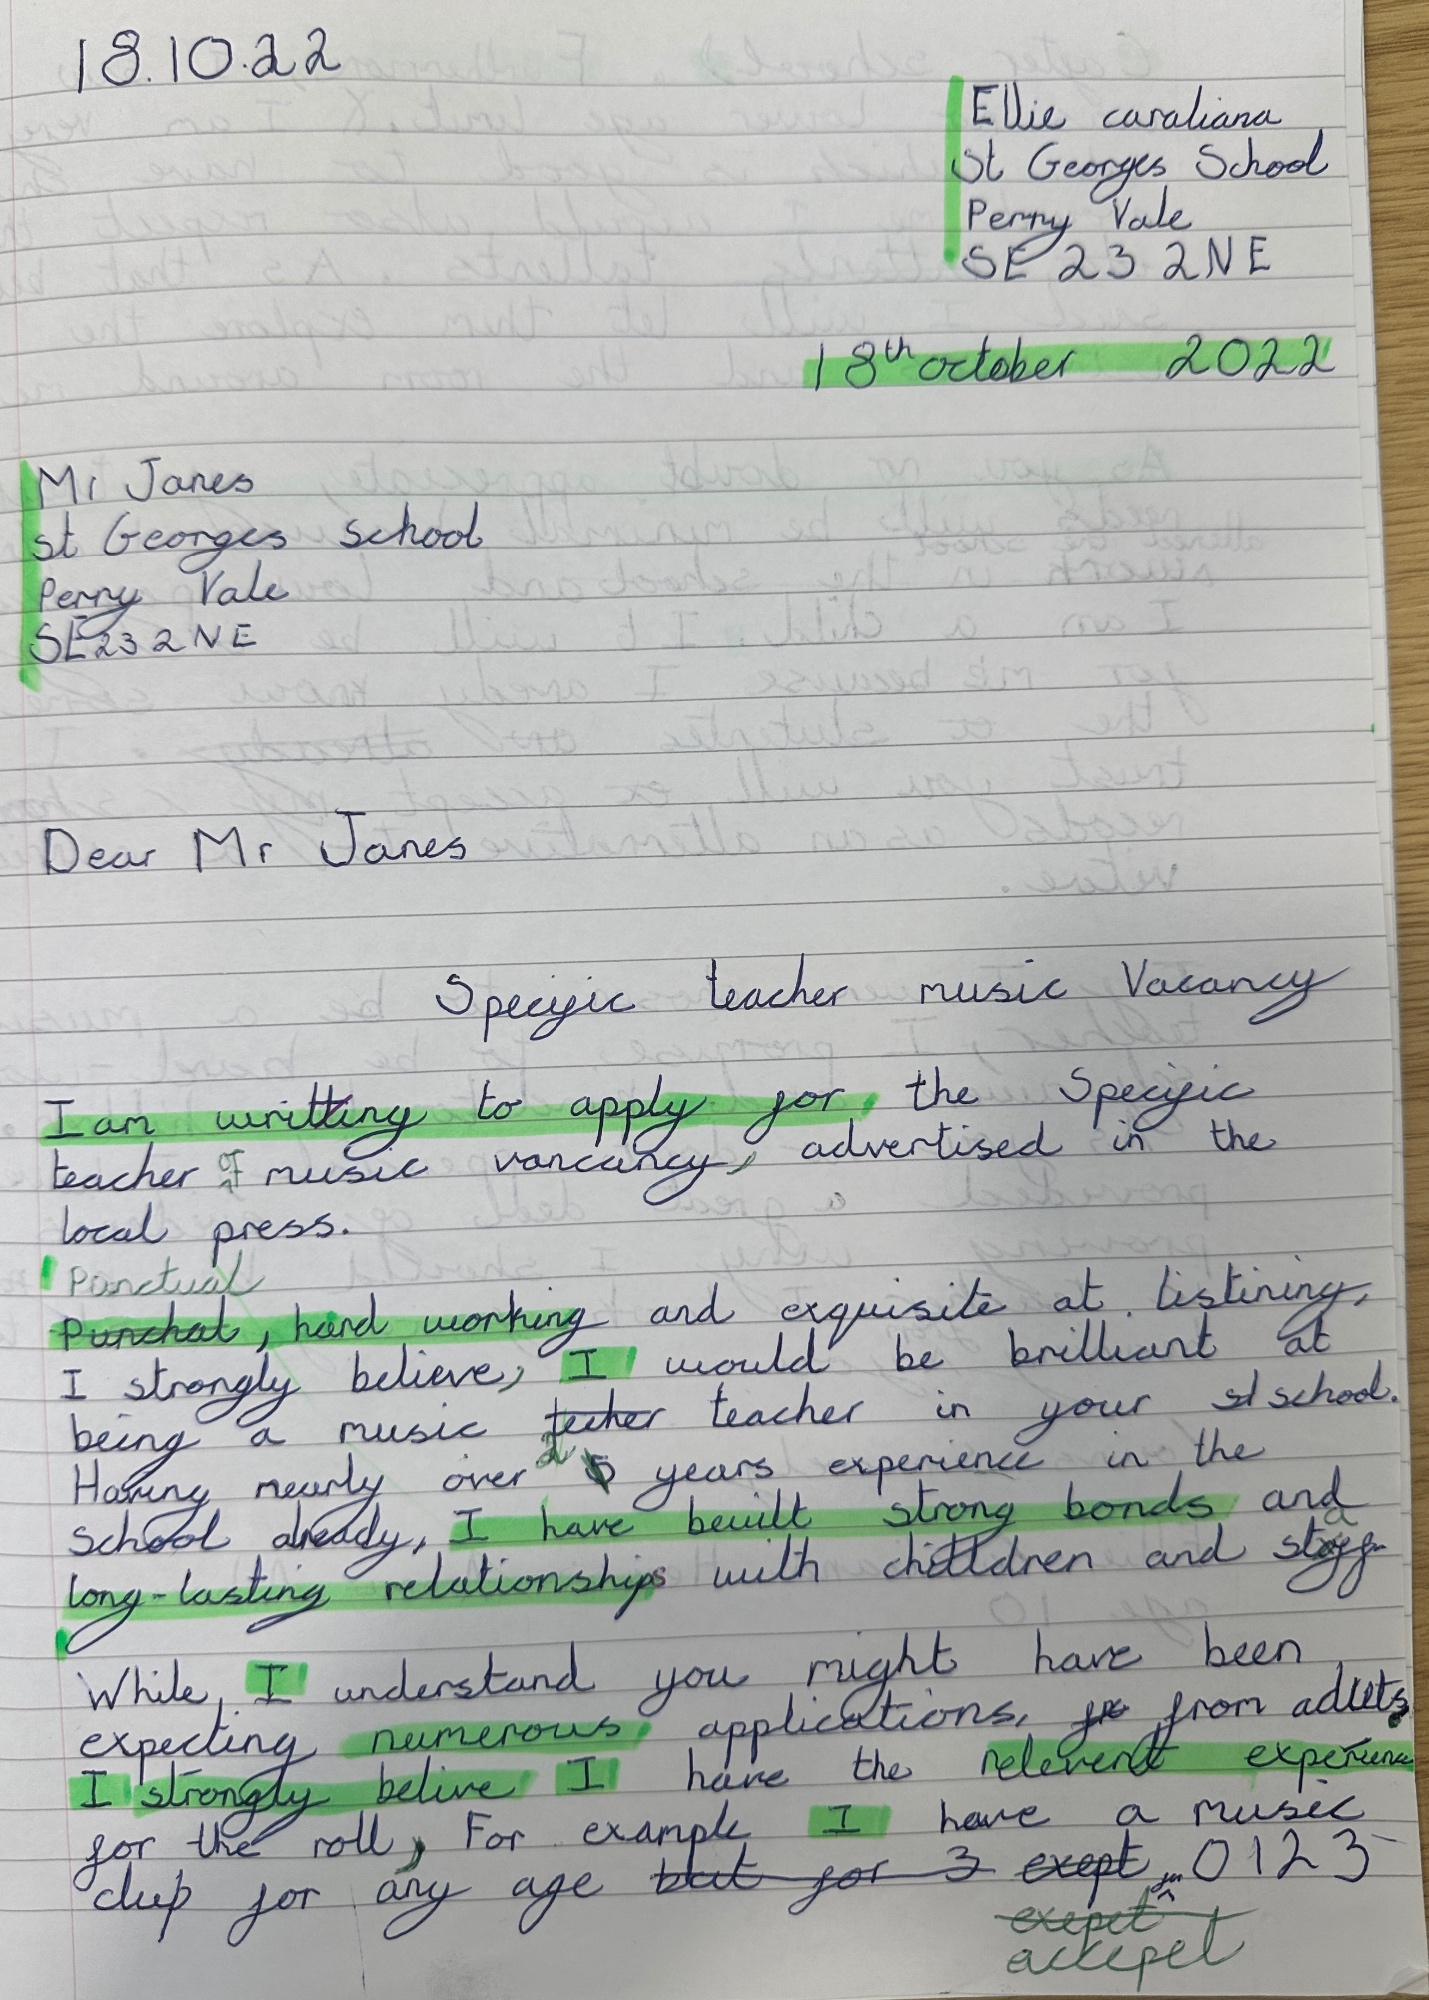 18.10.22
Ellie caraliana
St Georges School
Perry Vale
SE 23 2NE
18th october 2022
Mr Janes
St Georges School
Perry Vale
SE23 2NE
Dear Mr Janes
Specific teacher music Vacancy
I am writting to apply for the Specific
teacher of music vancancy, advertised in the
local press.
Punctual
Punchat, hard working and exquisite at listining,
I strongly believe, I would be brilliant at
being a music techer teacher in your st school.
Having nearly over 2 5 years experience in the
School already, I have beuilt strong bonds and
long-lasting relationships with chilldren and staff
While, I understand you might have been
expecting numerous applications, from adults.
I strongly belive I have the relevent experience
for the roll, For example I have a music
clup for any age but for 3 exept for 0123
exepet
accepet